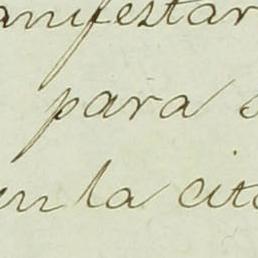 manifestar
para
en la cita